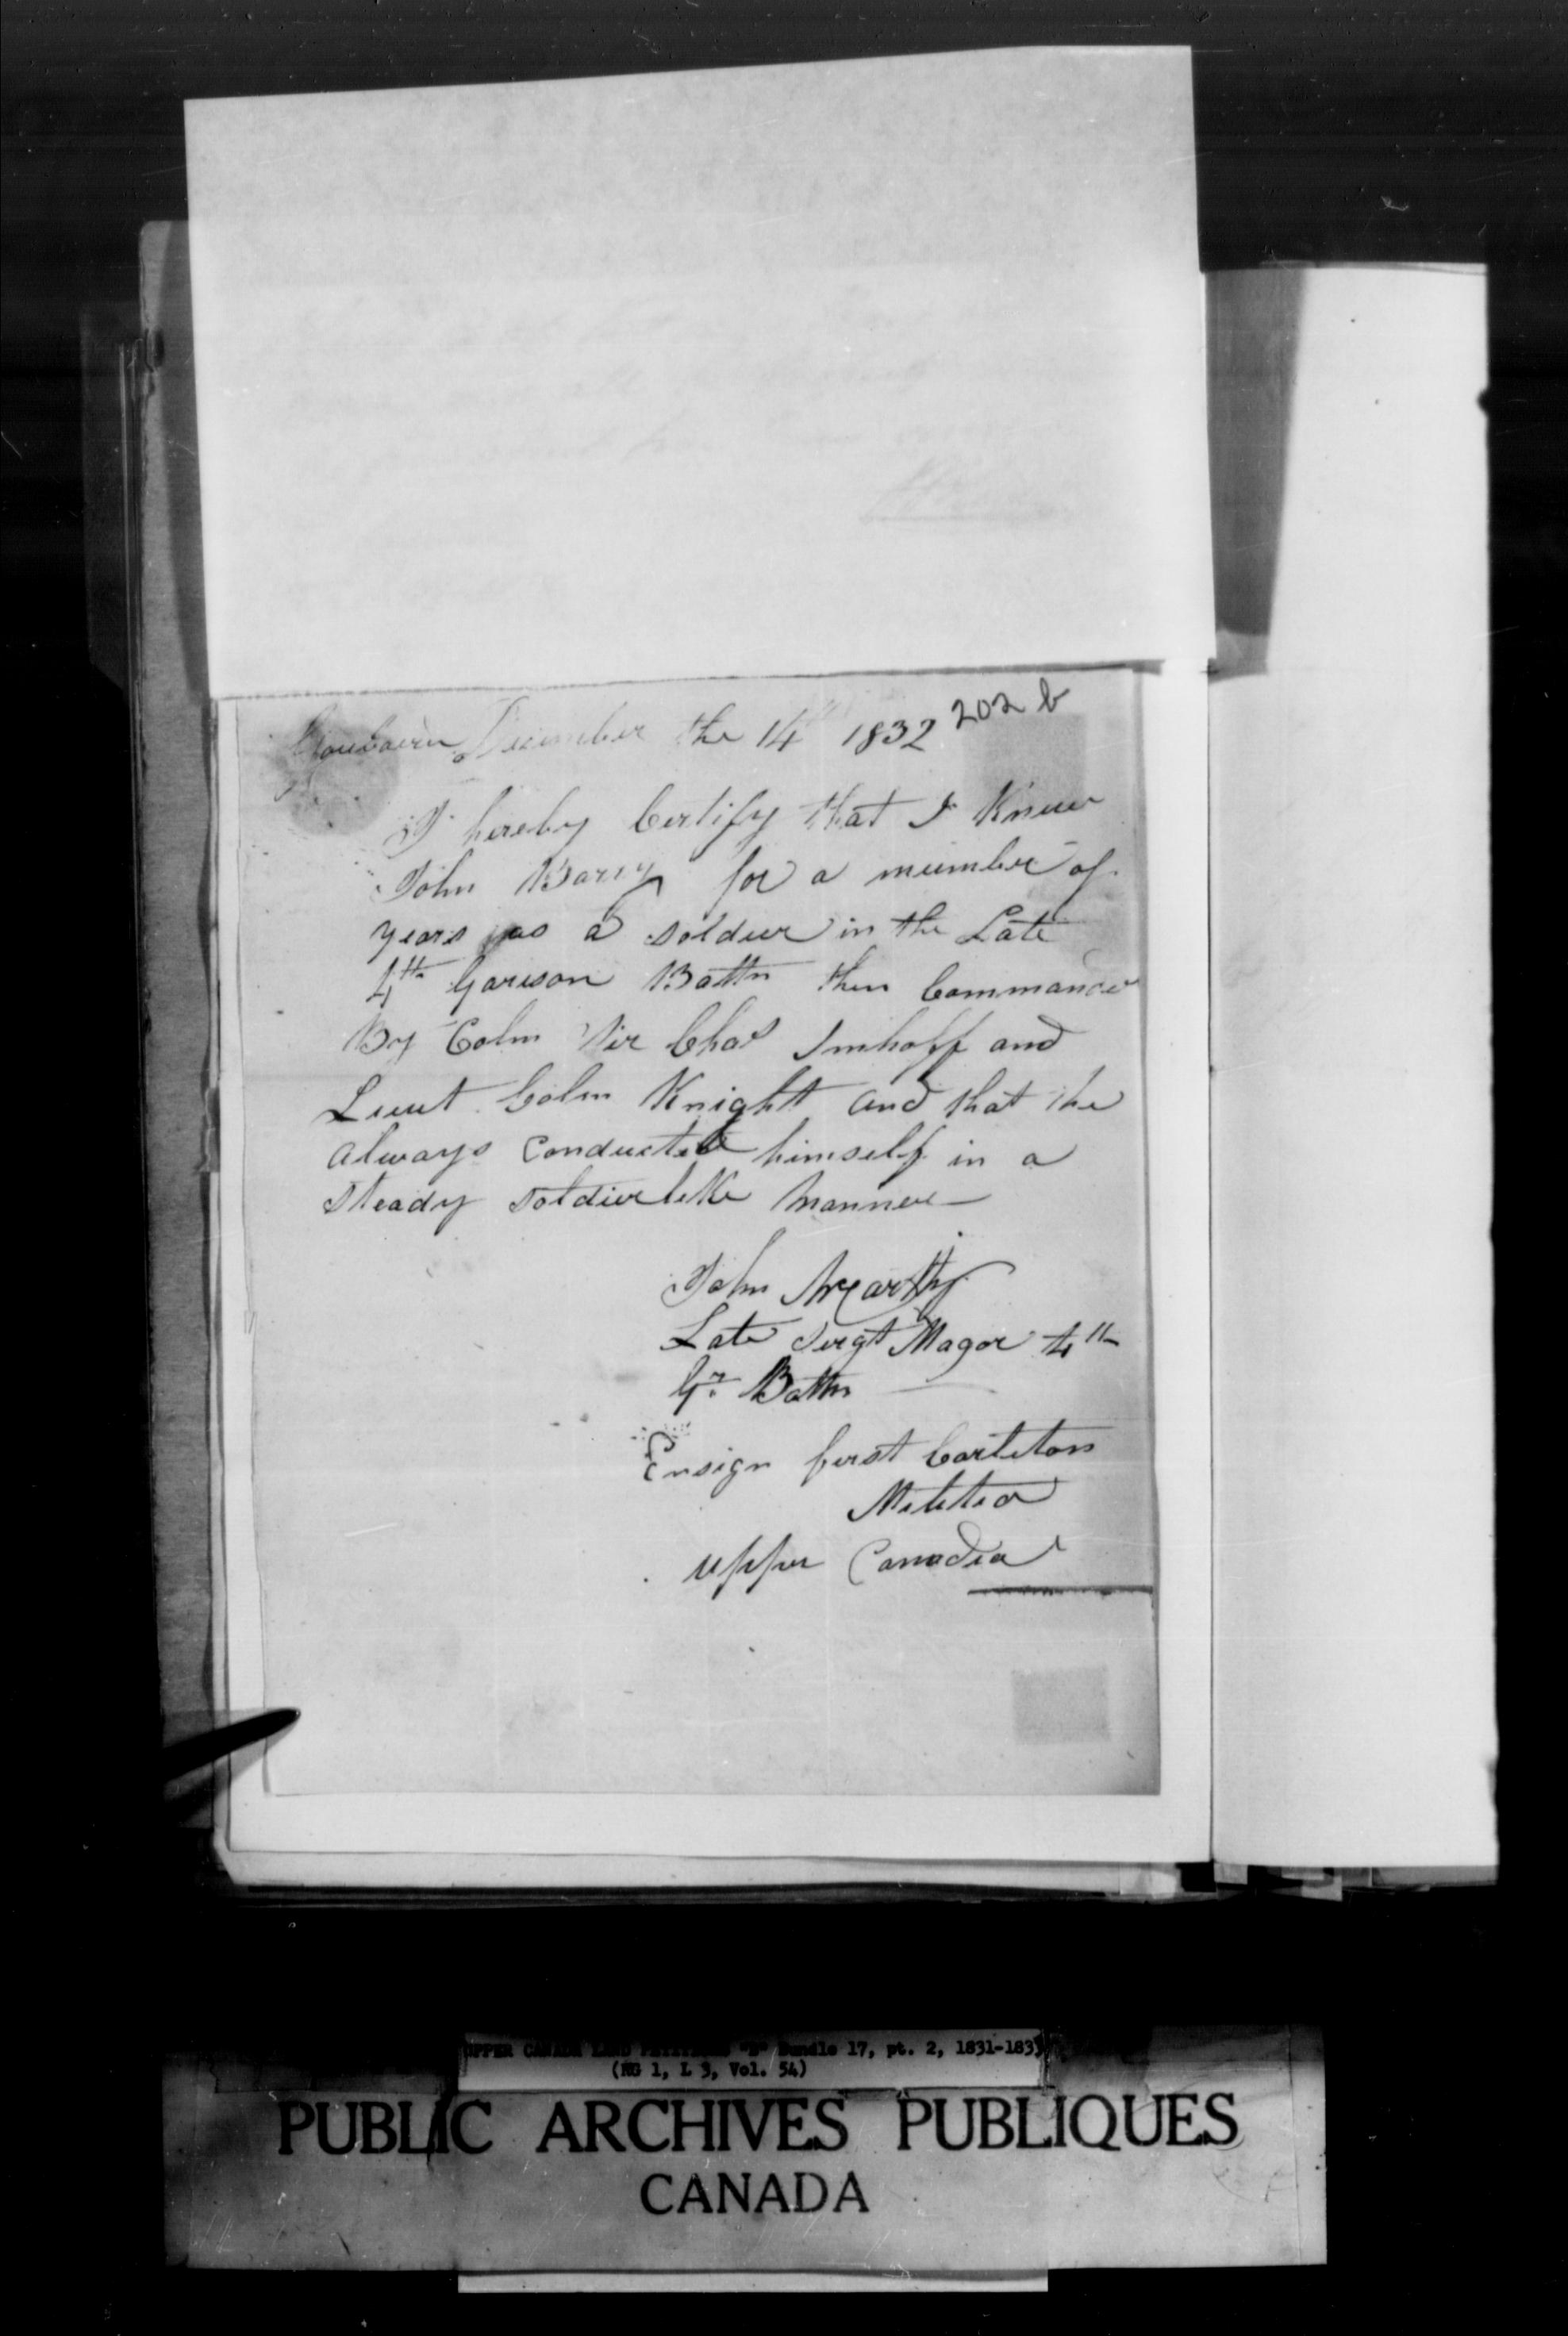 Goulbourn December the 14th 1832 202 b
I hereby Certify that I Knew
John Barry for a number of
years as a soldier in the Late
4th Garison Battn then Commanded
By Colm Sir Chas Imhoff and
Lieut Colm Knight and that he
always Conducted himself in a
steady soldierlike manner—
John McCarthy
Late Sergt Magor 4th
Gn Battn
Ensign first Carleton
Militia
Upper Canada
UPPER CANADA LAND PETITIONS "B" Bundle 17, pt. 2, 1831-1833
(RG 1, L 3, Vol. 54)
PUBLIC ARCHIVES PUBLIQUES
CANADA